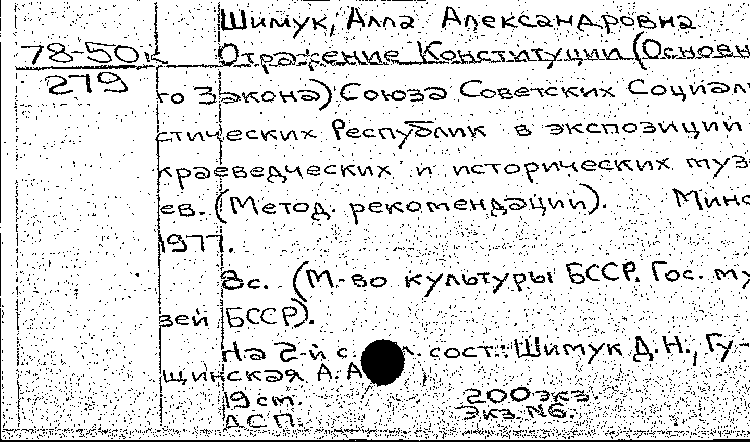 Шимук, Алла Александровна
78-50к Отражение Конституции (Основн
279
го Закона) Союза Советских Социали
стических Республик в экспозиции
краеведческих и исторических музе
ев. (Метод. рекомендации). Минс
1977.
8с. (М-во культуры БССР. Гос. му
зей БССР).
На 2-й с. сост.: Шимук Д.Н., Гу-
щинская А.А
19 ст. 200 экз
Экз. №6.